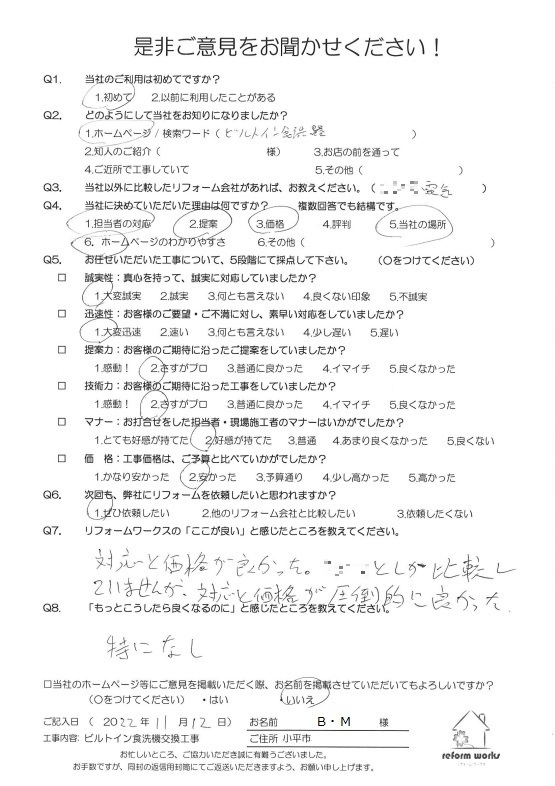 是非ご意見をお聞かせください！
Q1. 当社のご利用は初めてですか？
1.初めて 2.以前に利用したことがある
Q2. どのようにして当社をお知りになりましたか？
1.ホームページ / 検索ワード（ビルトイン食洗器 ）
2.知人のご紹介（ 様） 3.お店の前を通って
4.ご近所で工事していて 5.その他（ ）
Q3. 当社以外に比較したリフォーム会社があれば、お教えください。（ 電気 ）
Q4. 当社に決めていただいた理由は何ですか？ 複数回答でも結構です。
1.担当者の対応 2.提案 3.価格 4.評判 5.当社の場所
6. ホームページのわかりやすさ 6.その他（ ）
Q5. お任せいただいた工事について、5段階にて採点して下さい。 （○をつけてください）
□ 誠実性：真心を持って、誠実に対応していましたか？
1.大変誠実 2.誠実 3.何とも言えない 4.良くない印象 5.不誠実
□ 迅速性：お客様のご要望・ご不満に対し、素早い対応をしていましたか？
1.大変迅速 2.速い 3.何とも言えない 4.少し遅い 5.遅い
□ 提案力：お客様のご期待に沿ったご提案をしていましたか？
1.感動！ 2.さすがプロ 3.普通に良かった 4.イマイチ 5.良くなかった
□ 技術力：お客様のご期待に沿った工事をしていましたか？
1.感動！ 2.さすがプロ 3.普通に良かった 4.イマイチ 5.良くなかった
□ マナー：お打合せをした担当者・現場施工者のマナーはいかがでしたか？
1.とても好感が持てた 2.好感が持てた 3.普通 4.あまり良くなかった 5.良くない
□ 価 格：工事価格は、ご予算と比べていかがでしたか？
1.かなり安かった 2.安かった 3.予算通り 4.少し高かった 5.高かった
Q6. 次回も、弊社にリフォームを依頼したいと思われますか？
1.ぜひ依頼したい 2.他のリフォーム会社と比較したい 3.依頼したくない
Q7. リフォームワークスの「ここが良い」と感じたところを教えてください。
対応と価格が良かった。 としか比較し
ていませんが、対応と価格が圧倒的に良かった。
Q8. 「もっとこうしたら良くなるのに」と感じたところを教えてください。
特になし
□当社のホームページ等にご意見を掲載いただく際、お名前を掲載させていただいてもよろしいですか？
（○をつけてください） ・はい ・いいえ
ご記入日（ 2022年 11月 12日） お名前 B・M 様
工事内容: ビルトイン食洗機交換工事 ご住所 小平市
お忙しいところ、ご協力いただき誠に有難うございました。
お手数ですが、同封の返信用封筒にてご返送いただきますよう、お願い申し上げます。
reform works